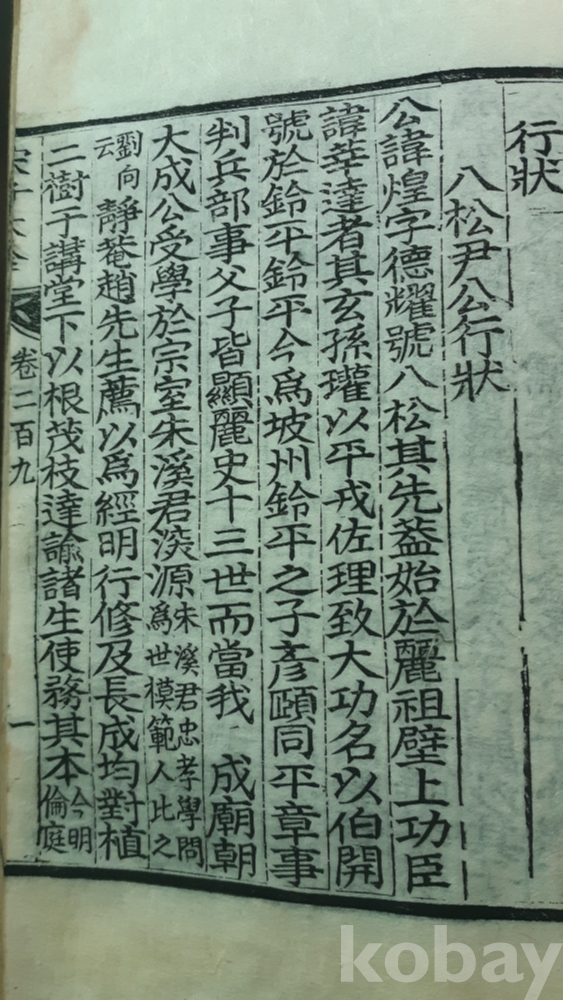 行狀
八松尹公行狀
公諱煌字德耀號八松其先蓋始於麗祖壁上功臣
諱莘達者其玄孫瓘以平戎佐理致大功名以伯開
號於鈴平鈴平今爲坡州鈴平之子彦頤同平章事
判兵部事父子皆顯麗史十三世而當我 成廟朝
大成公受學於宗室朱溪君深源朱溪君忠孝學問爲世模範人比之
劉向云靜菴趙先生薦以爲經明行修及長成均對植
二樹于講堂下以根茂枝達諭諸生使務其本今明倫庭
宋子大全 卷二百九 一
kobay